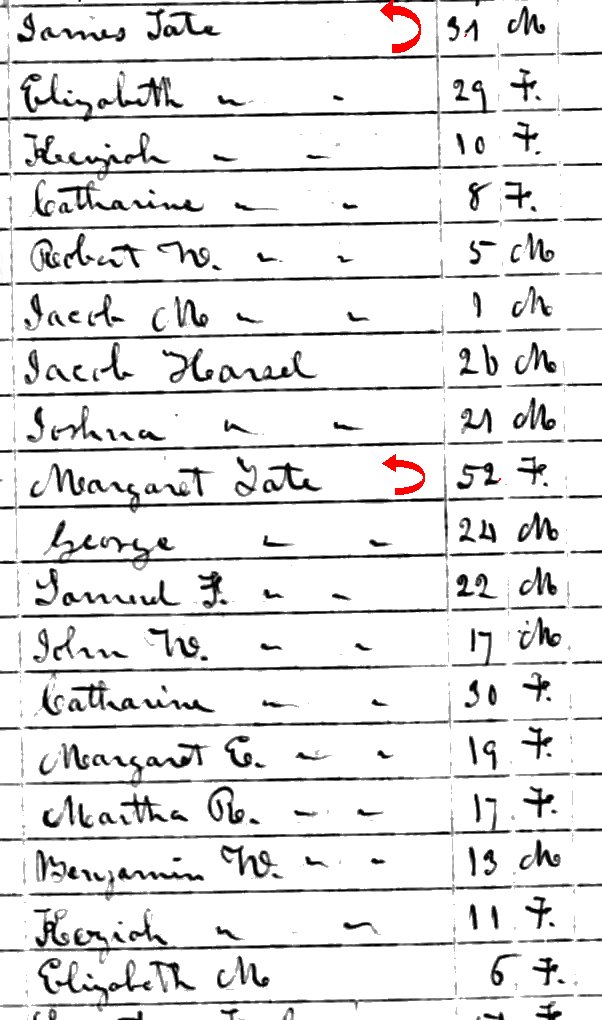 James Tate 31 M
Elizabeth " " 29 F.
Keziah " " 10 F.
Catharine " " 8 F.
Robert W. " " 5 M
Jacob M " " 1 M
Jacob Harsel 26 M
Joshua " " 21 M
Margaret Tate 52 F.
George " " 24 M
Samuel F. " " 22 M
John W. " " 17 M
Catharine " " 30 F.
Margaret E. " " 19 F.
Martha R. " " 17 F.
Benjamin W. " " 13 M
Keziah " " 11 F.
Elizabeth M 6 F.